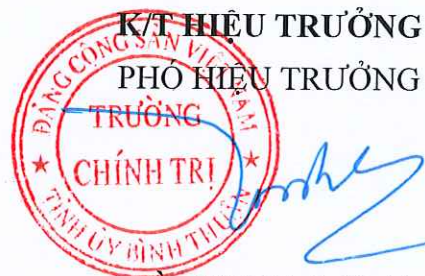 K/T HIỆU TRƯỞNG
PHÓ HIỆU TRƯỞNG
ĐẢNG CỘNG SẢN VIỆT NAM
TRƯỜNG
CHÍNH TRỊ
TỈNH ỦY BÌNH THUẬN